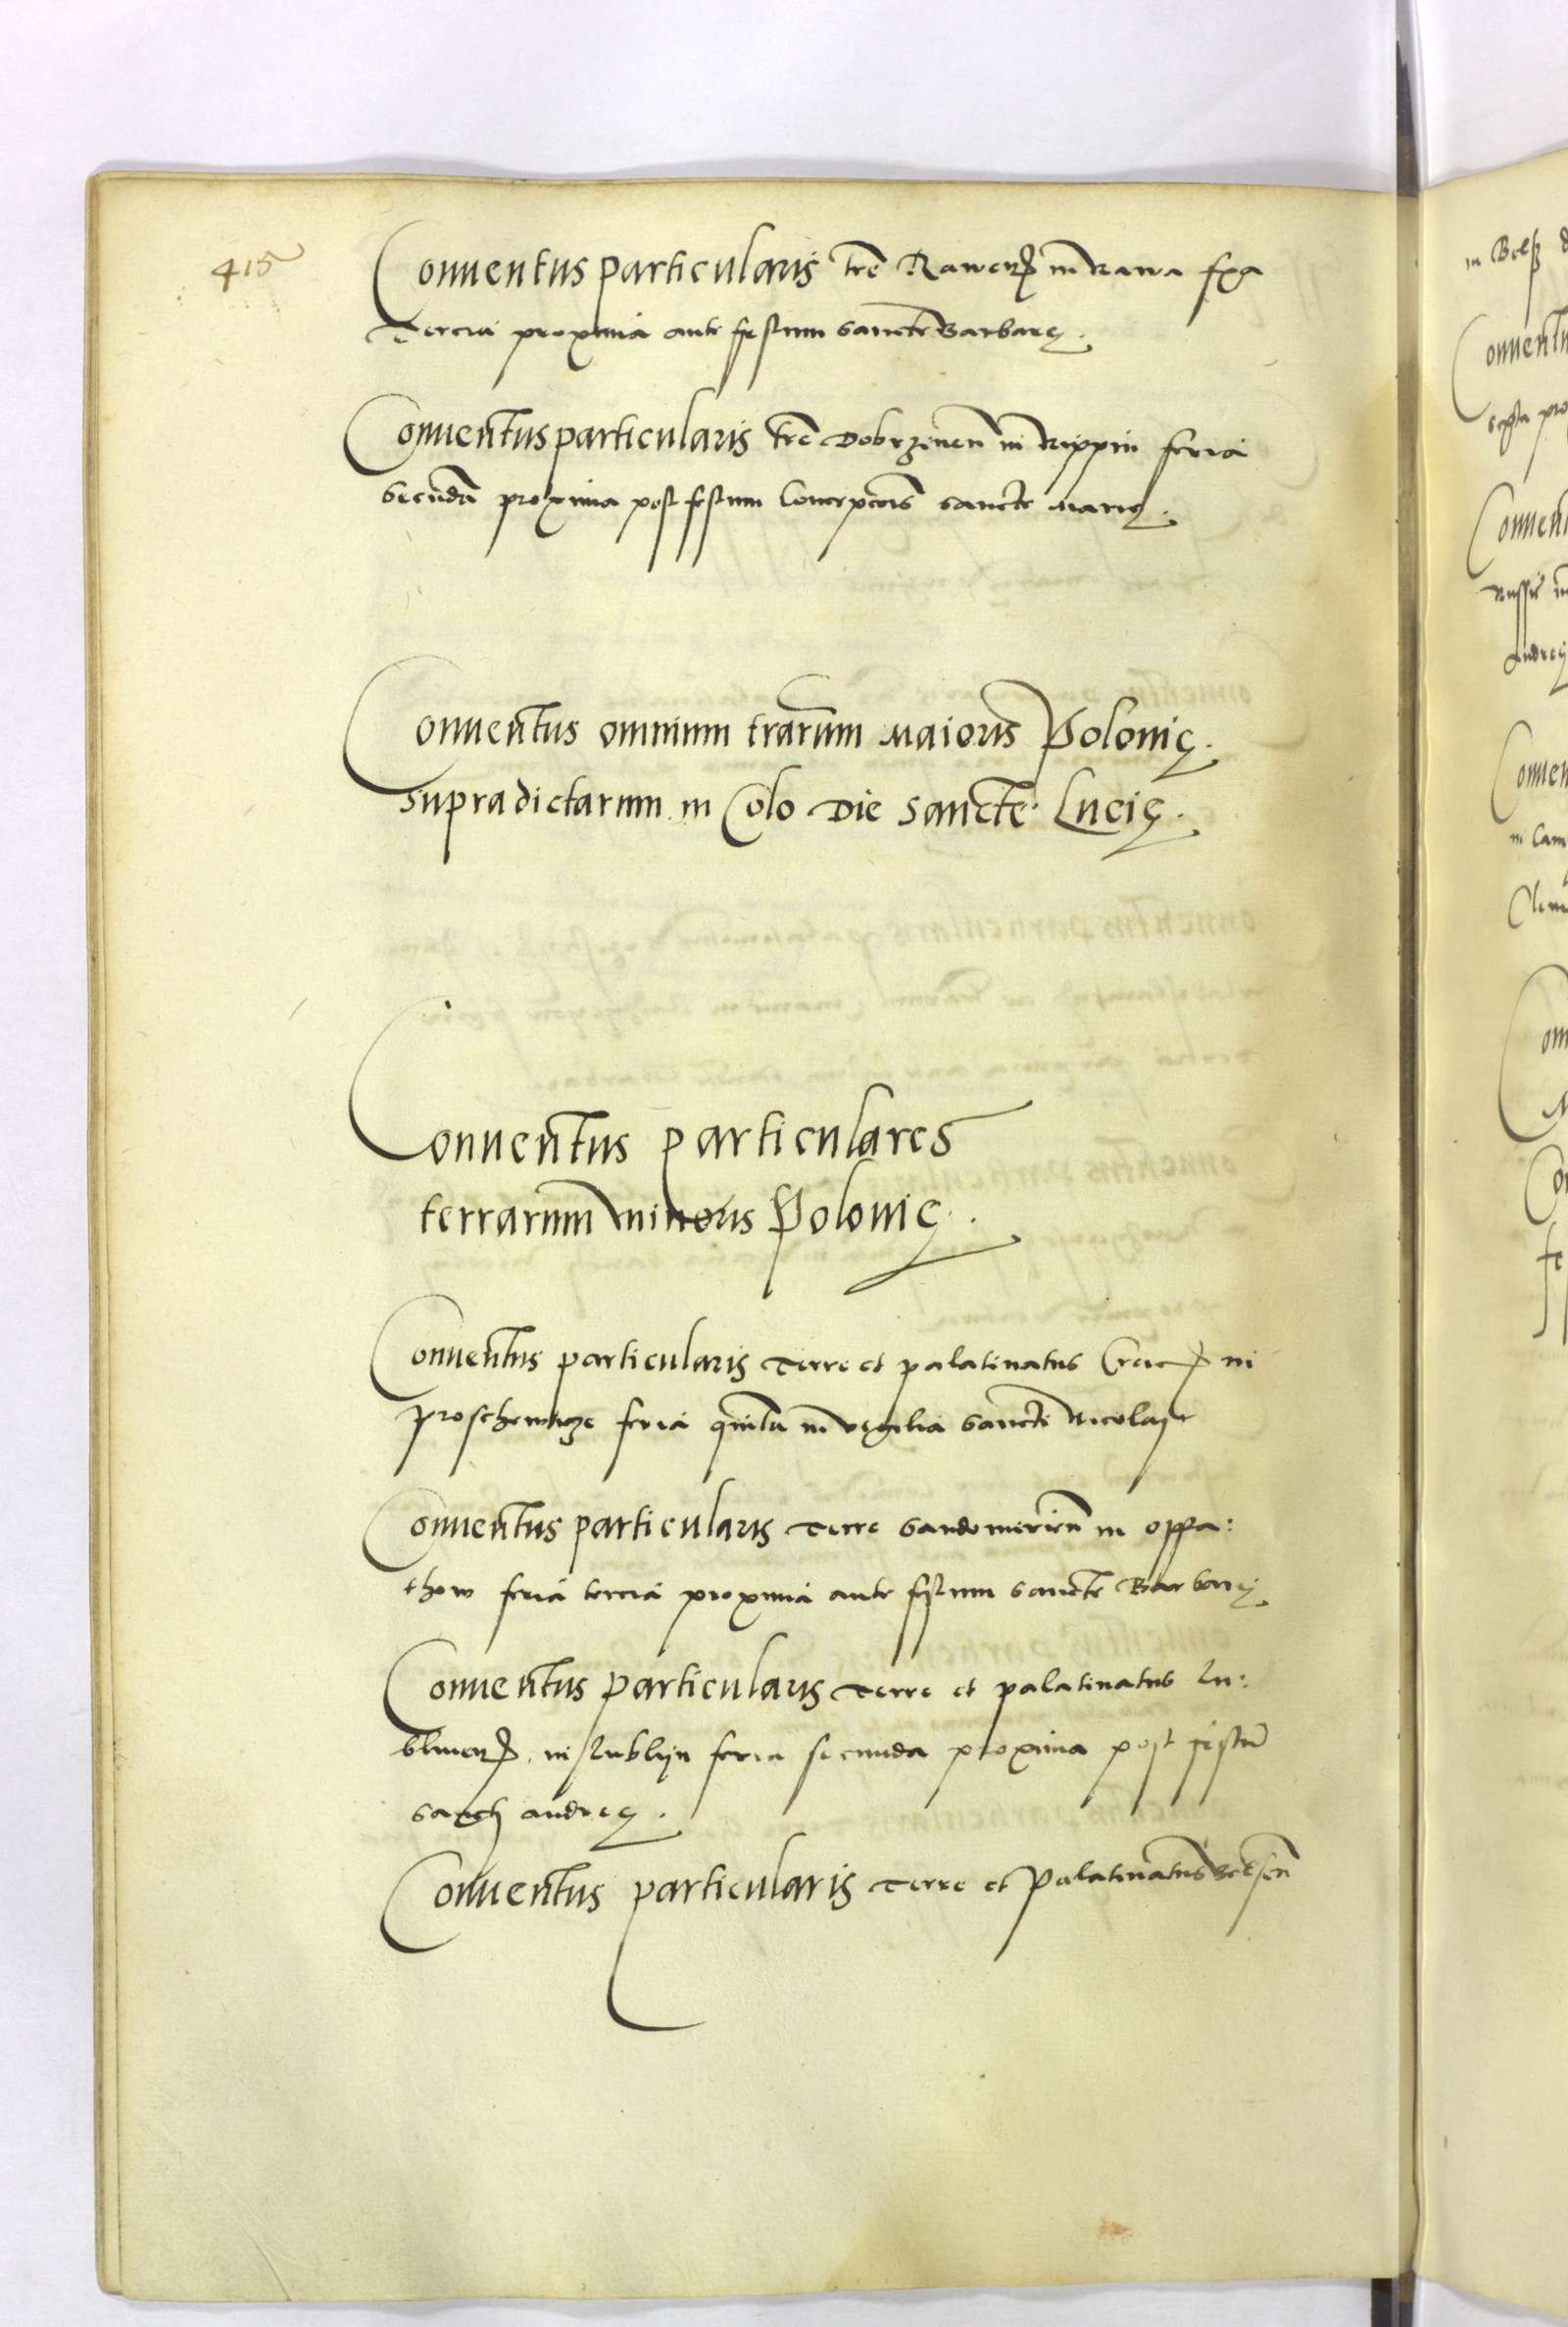 415
Conventus particularis tre Rawen in Rawa fria
Tercia proxima ante festum Sancte Barbarę.
Conventus particularis tre Dobrzinen in Rippin feria
Secunda proxima post festum Concepcois Sancte Marię.
Conventus omnium trarum Maioris Polonię.
supradictarum in Colo Die Sancte Lucię.
Conventus particulares
terrarum minoris Polonię.
Conventus particularis Terre et palatinatus Crac in
proschowicze feria quinta in vigilia Sancti Nicolai
Conventus particularis Terre Sandomirien in oppa:
thow feria tercia proxima ante festum Sancte Barbarę
Conventus particularis Terre et palatinatus Lu:
blinen in Lublijn feria secunda proxima post festum
Sancti andreę.
Conventus particularis Terre et Palatinatus Belsen